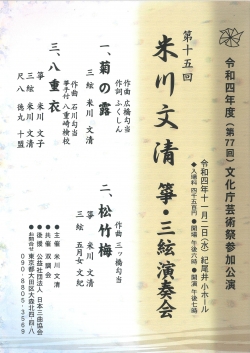 令和四年度(第77回)文化庁芸術祭参加公演
第十五回
米川文清 箏・三絃演奏会
令和四年十一月二日(水) 紀尾井小ホール
◆入場料 四千五百円 ●開場 午後六時 ●開演 午後七時
一、菊の露
作曲 広橋勾当
作詞 ふくしん
三絃 米川 文清
二、松竹梅
作曲 三ッ橋勾当
箏 米川 文清
三絃 五月女 文紀
三、八重衣
作曲 石川勾当
箏手付 八重崎検校
箏 米川 文子
三絃 米川 文清
尺八 徳丸 十盟
●主催 米川 文清
●後援 公益社団法人 日本三曲協会
●お問合せ 東京都大田区大森北四
090-8805-3569